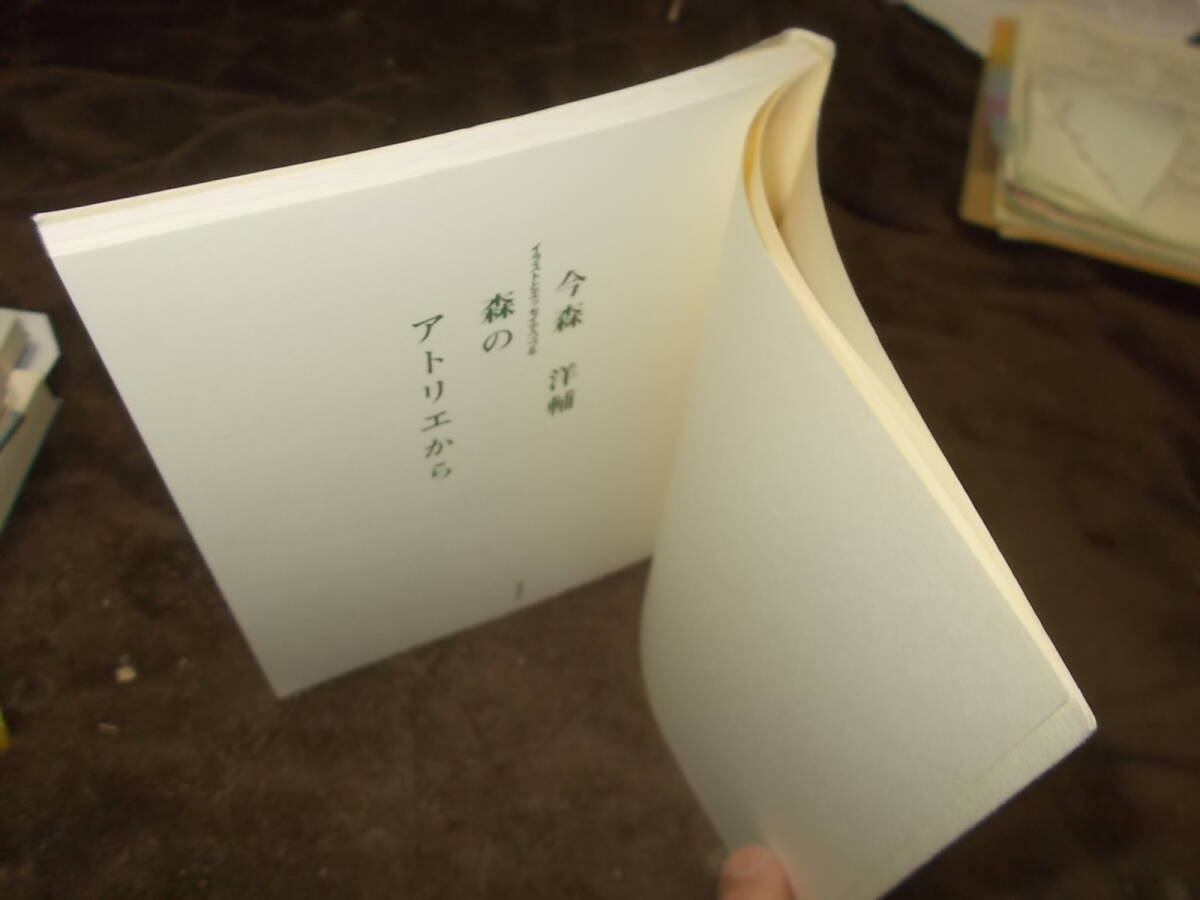 今森 洋輔
イラストとエッセイでつづる
森の
アトリエから